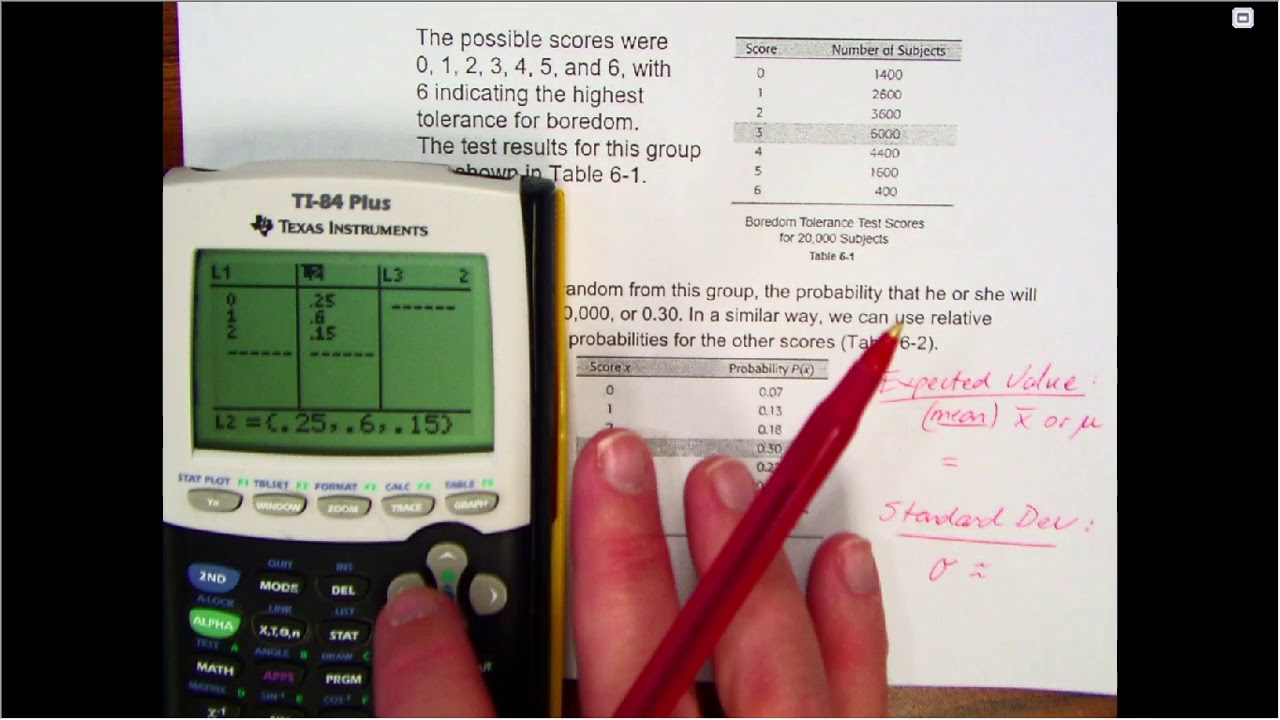 The possible scores were
0, 1, 2, 3, 4, 5, and 6, with
6 indicating the highest
tolerance for boredom.
The test results for this group
shown in Table 6-1.
Score Number of Subjects
0 1400
1 2600
2 3600
3 6000
4 4400
5 1600
6 400
Boredom Tolerance Test Scores
for 20,000 Subjects
Table 6-1
random from this group, the probability that he or she will
0,000, or 0.30. In a similar way, we can use relative
probabilities for the other scores (Table 6-2).
Score x Probability P(x)
0 0.07
1 0.13
2 0.18
0.30
Expected Value:
(mean) x̄ or μ
=
Standard Dev:
σ ≈
TI-84 Plus
TEXAS INSTRUMENTS
L1 L2 L3 2
0 .25 ------
1 .6
2 .15
------ ------
L2 ={.25,.6,.15}
STAT PLOT F1 TBLSET F2 FORMAT F3 CALC F4 TABLE F5
Y= WINDOW ZOOM TRACE GRAPH
QUIT INS
2ND MODE DEL
A-LOCK LINK LIST
ALPHA X,T,Θ,n STAT
TEST A ANGLE B DRAW C
MATH APPS PRGM
MATRIX D SIN⁻¹ E COS⁻¹ F
X⁻¹